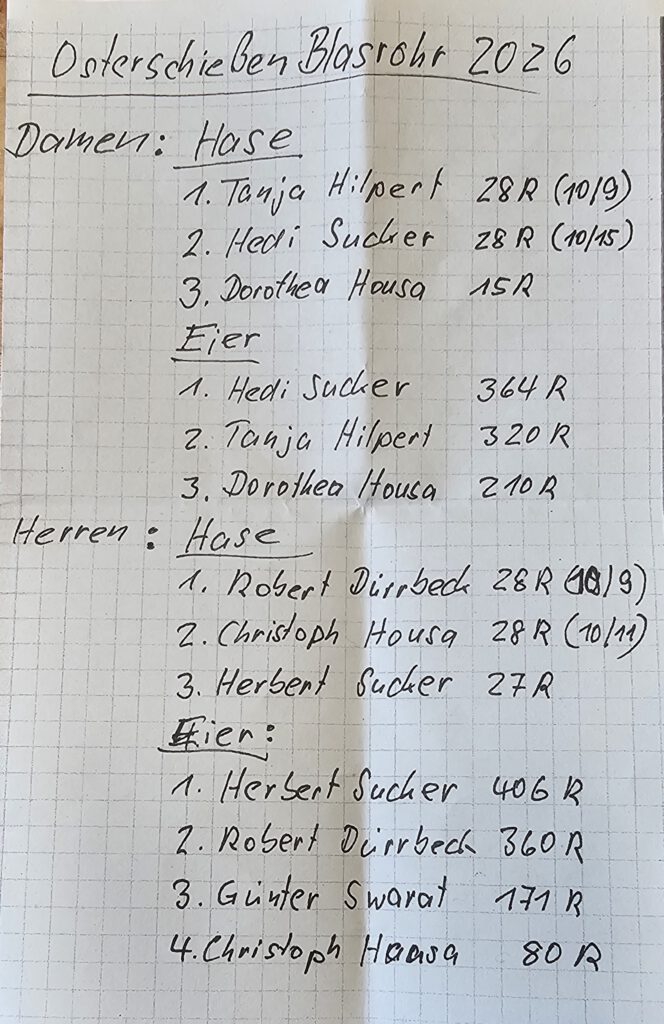 Osterschießen Blasrohr 2026
Damen: Hase
1. Tanja Hilpert 28 R (10/9)
2. Hedi Sucker 28 R (10/15)
3. Dorothea Housa 15 R
Eier
1. Hedi Sucker 364 R
2. Tanja Hilpert 320 R
3. Dorothea Housa 210 R
Herren: Hase
1. Robert Dürrbeck 28 R (10/9)
2. Christoph Housa 28 R (10/11)
3. Herbert Sucker 27 R
Eier:
1. Herbert Sucker 406 R
2. Robert Dürrbeck 360 R
3. Günter Swarat 171 R
4. Christoph Haasa 80 R